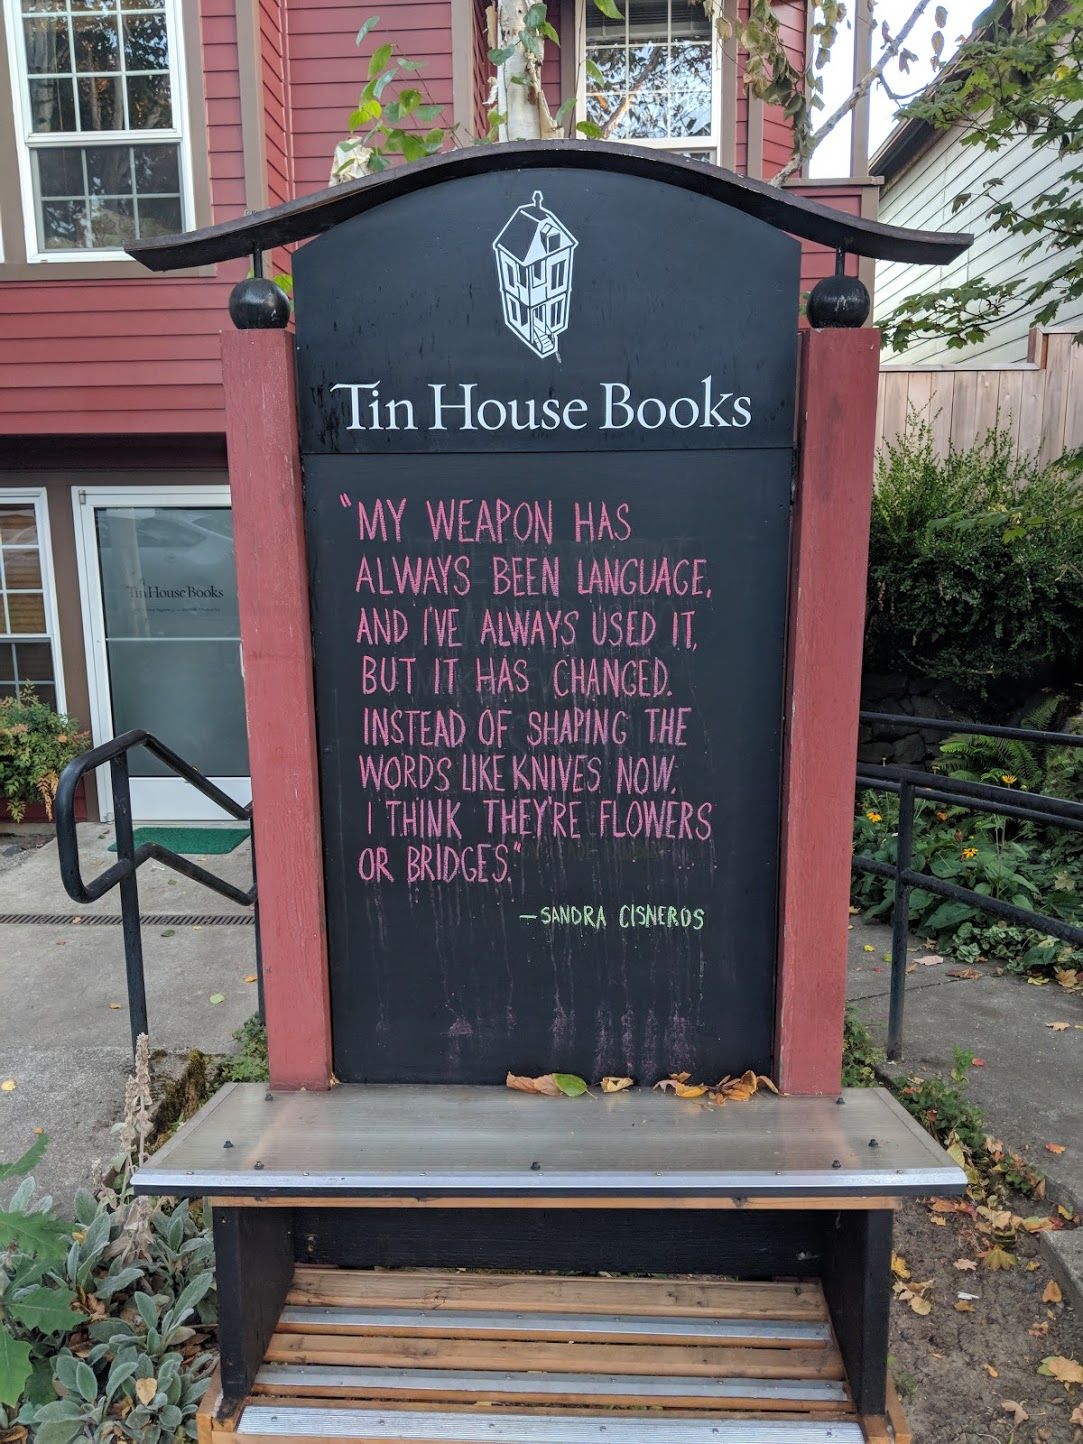 Tin House Books
"MY WEAPON HAS
ALWAYS BEEN LANGUAGE,
AND I'VE ALWAYS USED IT,
BUT IT HAS CHANGED.
INSTEAD OF SHAPING THE
WORDS LIKE KNIVES NOW,
I THINK THEY'RE FLOWERS
OR BRIDGES."
—SANDRA CISNEROS
Tin House Books